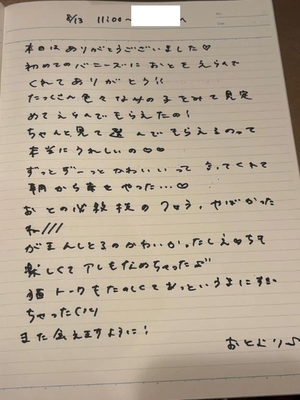 8/13 11:00〜 へ
本日はありがとうございました♡
初めてのバニーズにおとをえらんで
くれてありがとう!!
たっくさん色々な女の子をみて見定
めてえらんでもらえたの!
ちゃんと見て選んでもらえるのって
本当にうれしいの♡♡
ずっとずーっとかわいいって言ってくれて
朝から幸せやった…♡
おとの必殺技のフェラ、やばかった
ね///
がまんしとるのかわいかったしえっちで
楽しくてアレもなめちゃった♪
トークもたのしくてあっというまにすぎ
ちゃった
また会えますように!
おとより♪